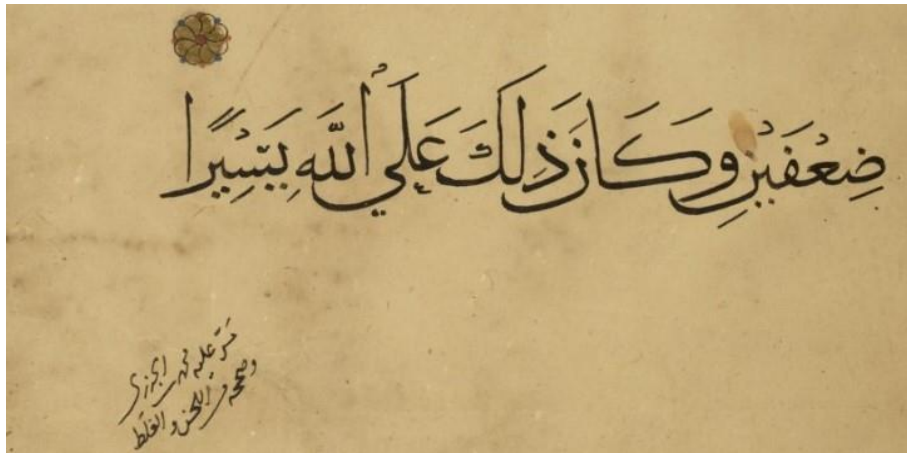 ضِعْفَيْنِ وَكَانَ ذَٰلِكَ عَلَى ٱللَّهِ يَسِيرًا
مرّ عليه محمد الجزري
وصححه من اللحن والغلط